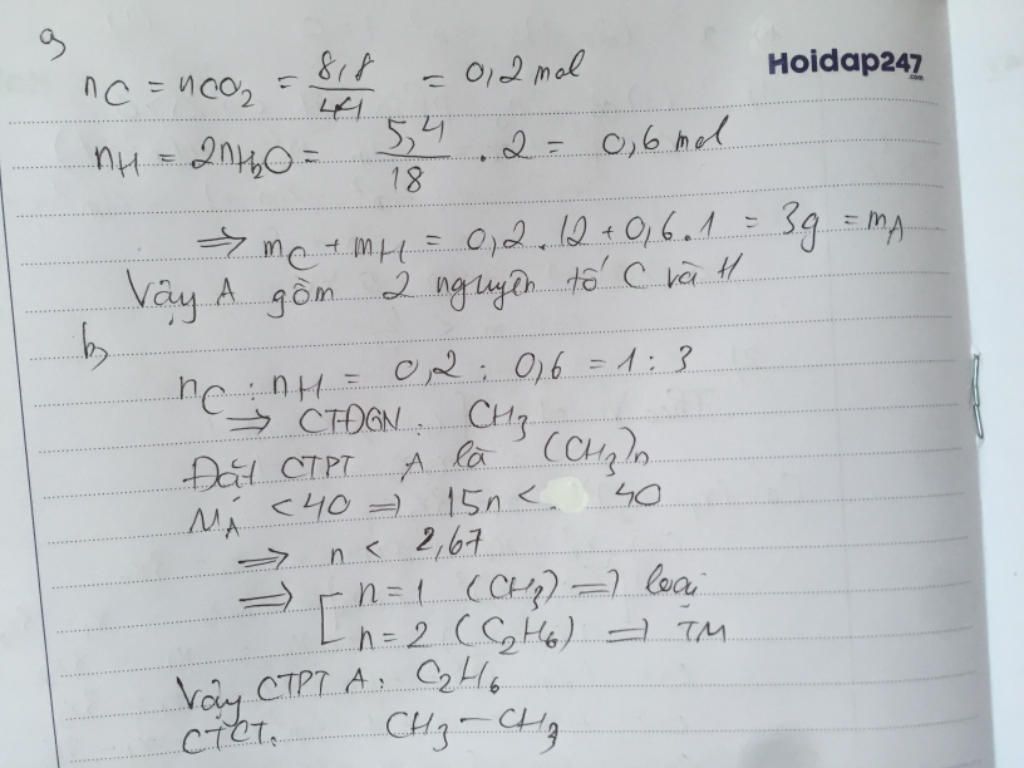 a,
Hoidap247
.com
nC = nCO₂ = 8,8/44 = 0,2 mol
nH = 2nH₂O = 5,4/18 . 2 = 0,6 mol
⇒ mC + mH = 0,2 . 12 + 0,6 . 1 = 3g = mA
Vậy A gồm 2 nguyên tố C và H
b,
nC : nH = 0,2 : 0,6 = 1 : 3
⇒ CTĐGN : CH₃
Đặt CTPT A là (CH₃)n
MA < 40 ⇒ 15n < 40
⇒ n < 2,67
⇒ [ n = 1 (CH₃) ⇒ loại
n = 2 (C₂H₆) ⇒ TM
Vậy CTPT A : C₂H₆
CTCT : CH₃ – CH₃